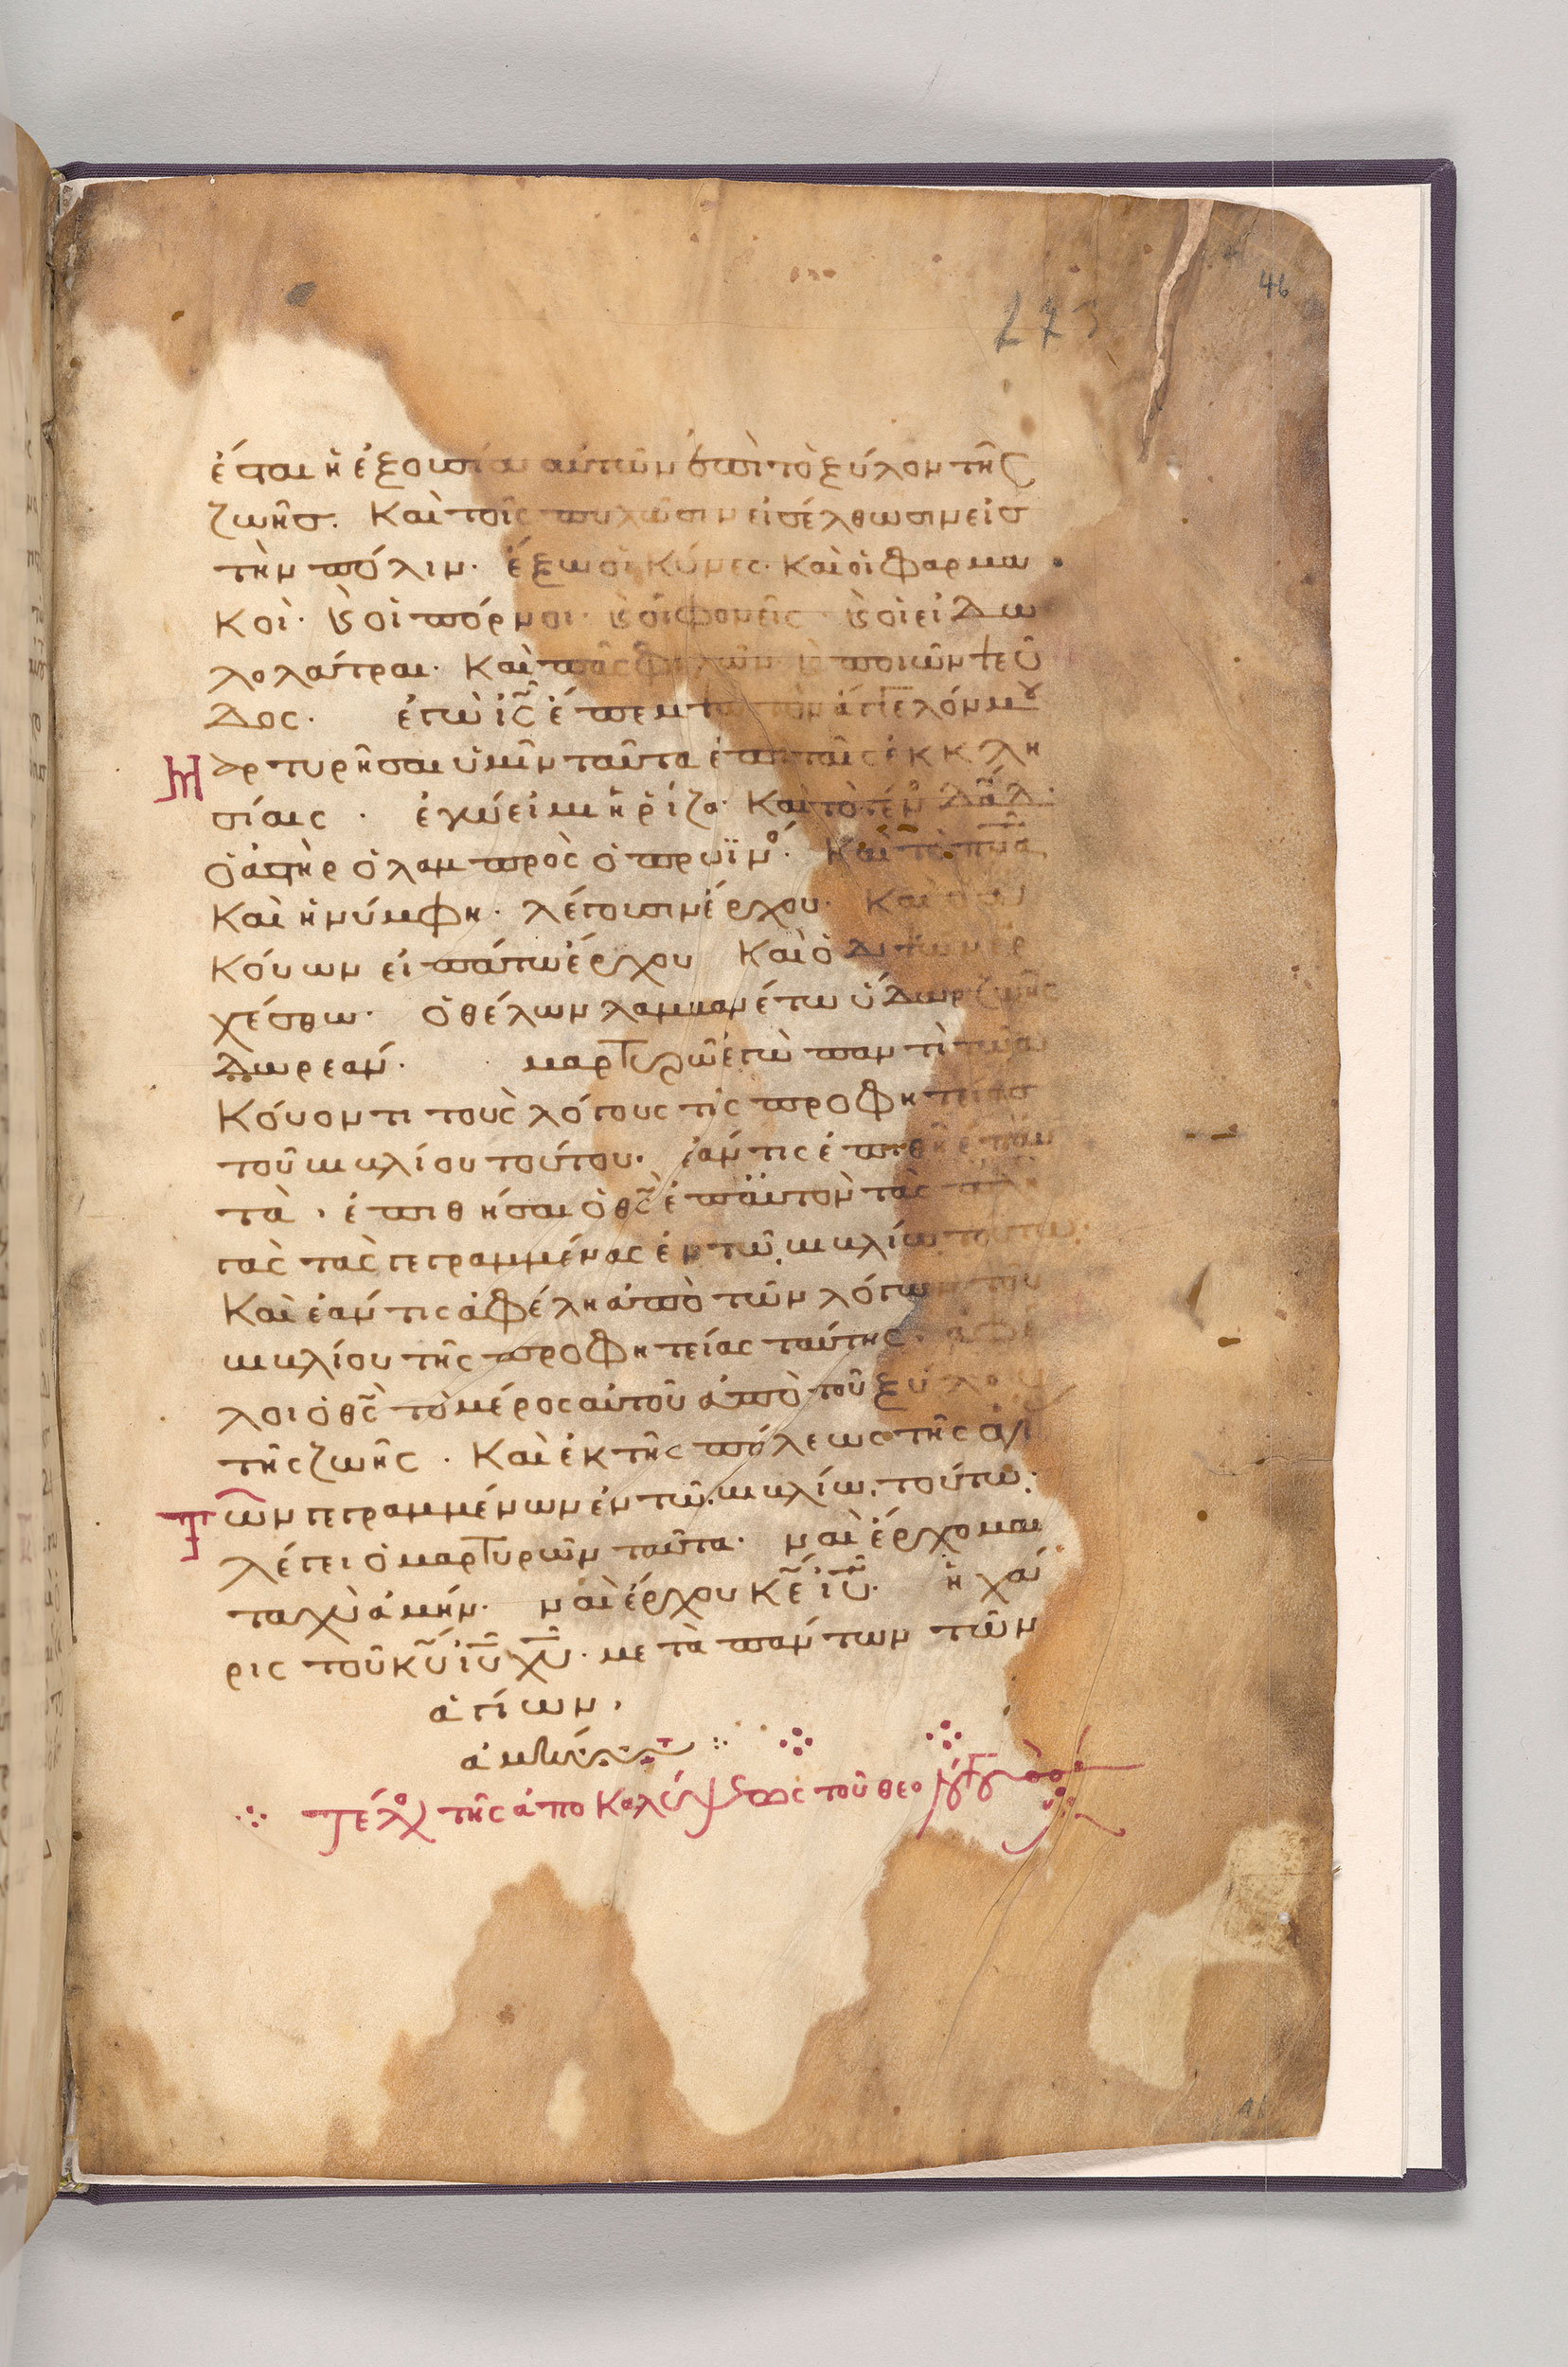 46
273
ἔσται ἡ ἐξουσία αὐτῶν ἐπὶ τὸ ξύλον τῆς
ζωῆσ. Καὶ τοῖς πυλῶσιν εἰσέλθωσιν εἰσ
τὴν πόλιν· ἔξω οἱ κύνες· καὶ οἱ φαρμα
κοὶ· ϗ οἱ πόρνοι· ϗ οἱ φονεῖς· ϗ οἱ εἰδω
λολάτραι· Καὶ πᾶς φιλῶν ϗ ποιῶν ψεῦ
δος· ἐγὼ ις̅ ἔπεμψα τὸν ἄγγελόν μου
Μ αρτυρῆσαι ὑμῖν ταῦτα ἐπὶ ταῖς ἐκκλη
σίαις · ἐγώ εἰμι ἡ ῥίζα· Καὶ τὸ γέν̊ δα̅δ·
ὁ ἀστὴρ ὁ λαμπρὸς ὁ πρωϊν̊· Καὶ τὸ πν̅α
Καὶ ἡ νύμφη· λέγουσιν ἔρχου· Καὶ ὁ ἀ
κούων εἰπάτω ἔρχου Καὶ ὁ διψῶν ἐρ
χέσθω· ὁ θέλων λαμβανέτω ὕδωρ ζωῆς
δωρεάν· μαρτυρῶ ἐγὼ παντὶ τῶ ἀ
κούοντι τοὺς λόγους τῆς προφητείασ
τοῦ βιβλίου τούτου· ἐάν τις ἐπιθῆ ἐπ' αυ
τὰ · ἐπιθήσαι ὁ θς̅ ἐπ' αὐτὸν τὰς πλη
γὰς τὰς γεγραμμένας ἐν τῶ βιβλίω τούτω·
Καὶ ἐάν τις ἀφέλη ἀπὸ τῶν λόγων τοῦ
βιβλίου τῆς προφητείας ταύτης· ἀφέ
λοι ὁ θς̅ τὸ μέρος αὐτοῦ ἀπὸ τοῦ ξύλου
τῆς ζωῆς · Καὶ ἐκ τῆς πόλεως τῆς ἁγί
Τ ῶν γεγραμμένων ἐν τῶ βιβλίω τούτω·
λέγει ὁ μαρτυρῶν ταῦτα· ναὶ ἔρχομαι
ταχὺ ἀμήν· ναὶ ἔρχου κε̅ ιυ̅· ἡ χά
ρις τοῦ κυ̅ ιυ̅ χυ̅· μετὰ πάντων τῶν
ἁγίων·
ἀμήν
τέλος τῆς ἀποκαλύψεως τοῦ θεολόγου